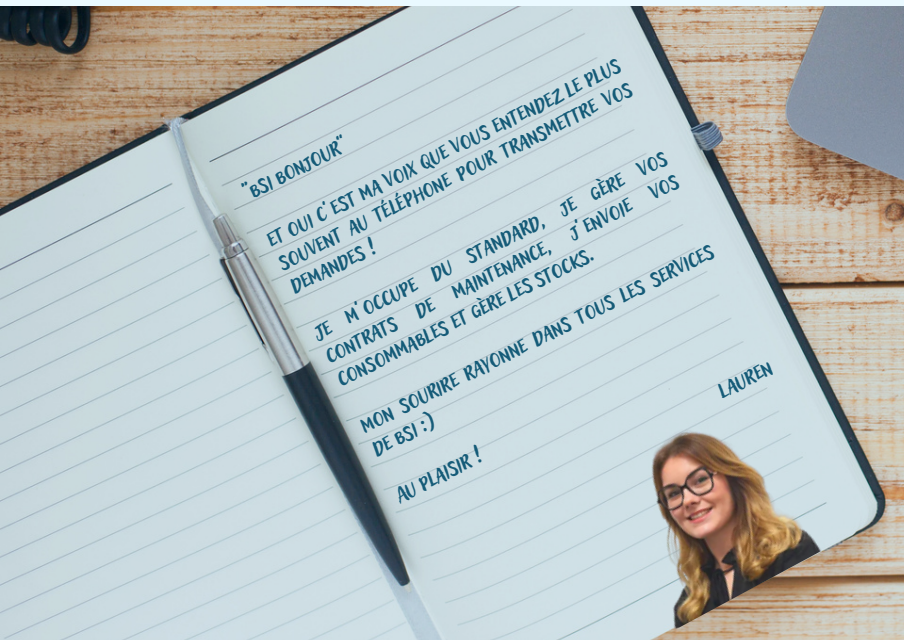 "BSI BONJOUR"
ET OUI C'EST MA VOIX QUE VOUS ENTENDEZ LE PLUS
SOUVENT AU TÉLÉPHONE POUR TRANSMETTRE VOS
DEMANDES !
JE M'OCCUPE DU STANDARD, JE GÈRE VOS
CONTRATS DE MAINTENANCE, J'ENVOIE VOS
CONSOMMABLES ET GÈRE LES STOCKS.
MON SOURIRE RAYONNE DANS TOUS LES SERVICES
DE BSI :)
LAUREN
AU PLAISIR !